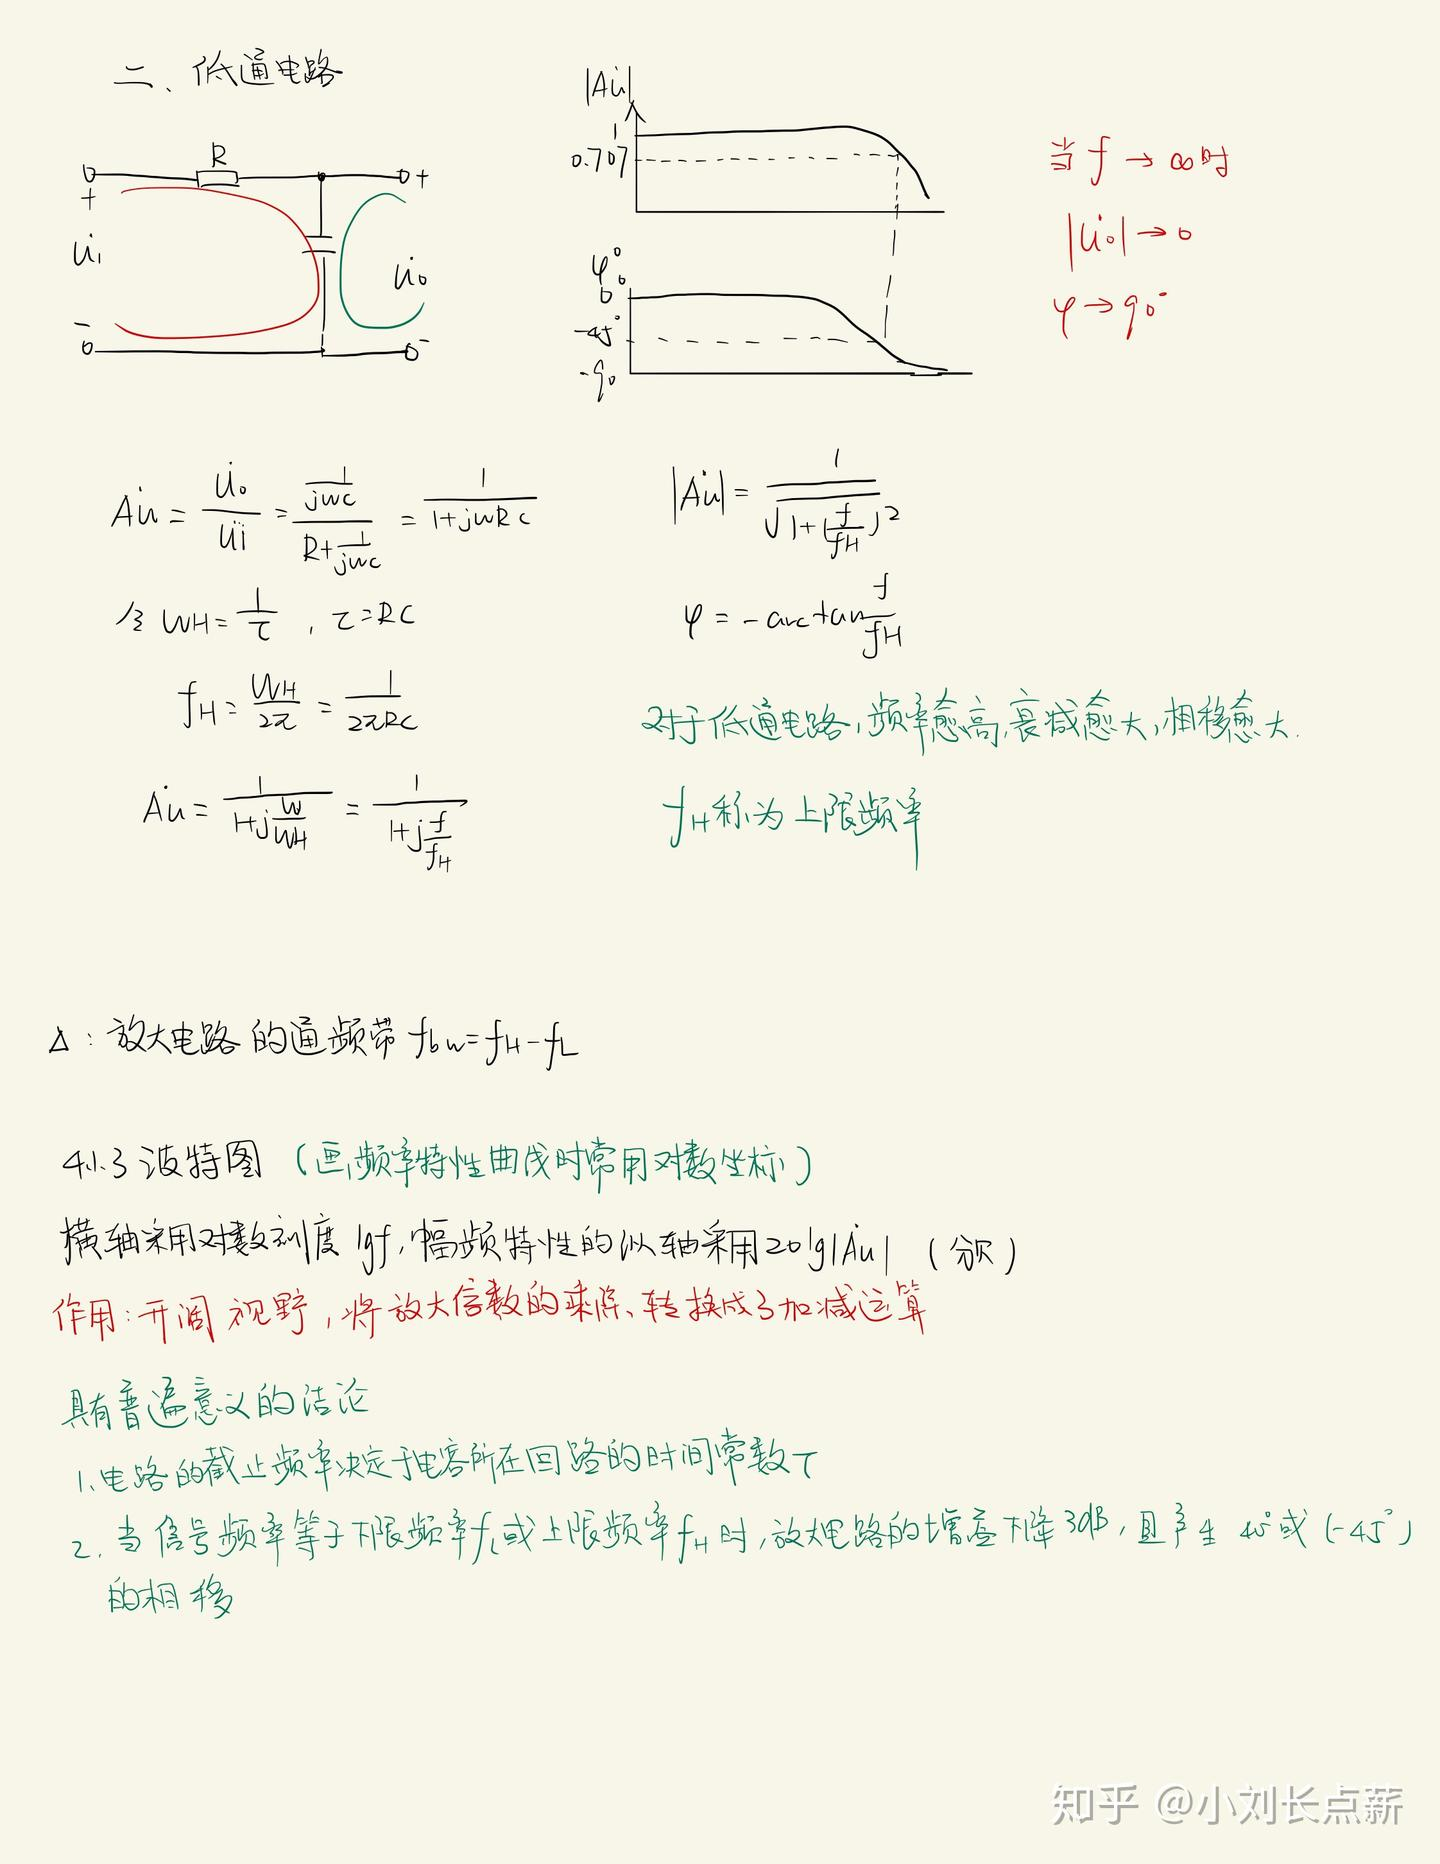 二、低通电路
R
+
U̇i
-
+
U̇o
-
|Au̇|
1
0.707
φ°
0
-45°
-90
当 f → ∞时
|U̇o| → 0
φ → 90°
Au̇ = U̇o/U̇i = (1/jwc)/(R+1/jwc) = 1/(1+jwRc)
令 WH = 1/τ , τ=RC
fH = WH/2π = 1/2πRC
Au̇ = 1/(1+j W/WH) = 1/(1+j f/fH)
|Au̇| = 1/√(1+(f/fH)²)
φ = -arctan f/fH
对于低通电路,频率愈高,衰减愈大,相移愈大.
fH称为上限频率
Δ: 放大电路的通频带 fbw=fH-fL
4.1.3 波特图 (画频率特性曲线时常用对数坐标)
横轴采用对数刻度 lgf, 幅频特性的纵轴采用20lg|Au̇| (分贝)
作用:开阔视野,将放大倍数的乘除、转换成了加减运算
具有普遍意义的结论
1.电路的截止频率决定于电容所在回路的时间常数τ
2.当信号频率等于下限频率fL或上限频率fH时,放大电路的增益下降3dB,且产生 45°或(-45°)
的相移
知乎 @小刘长点薪